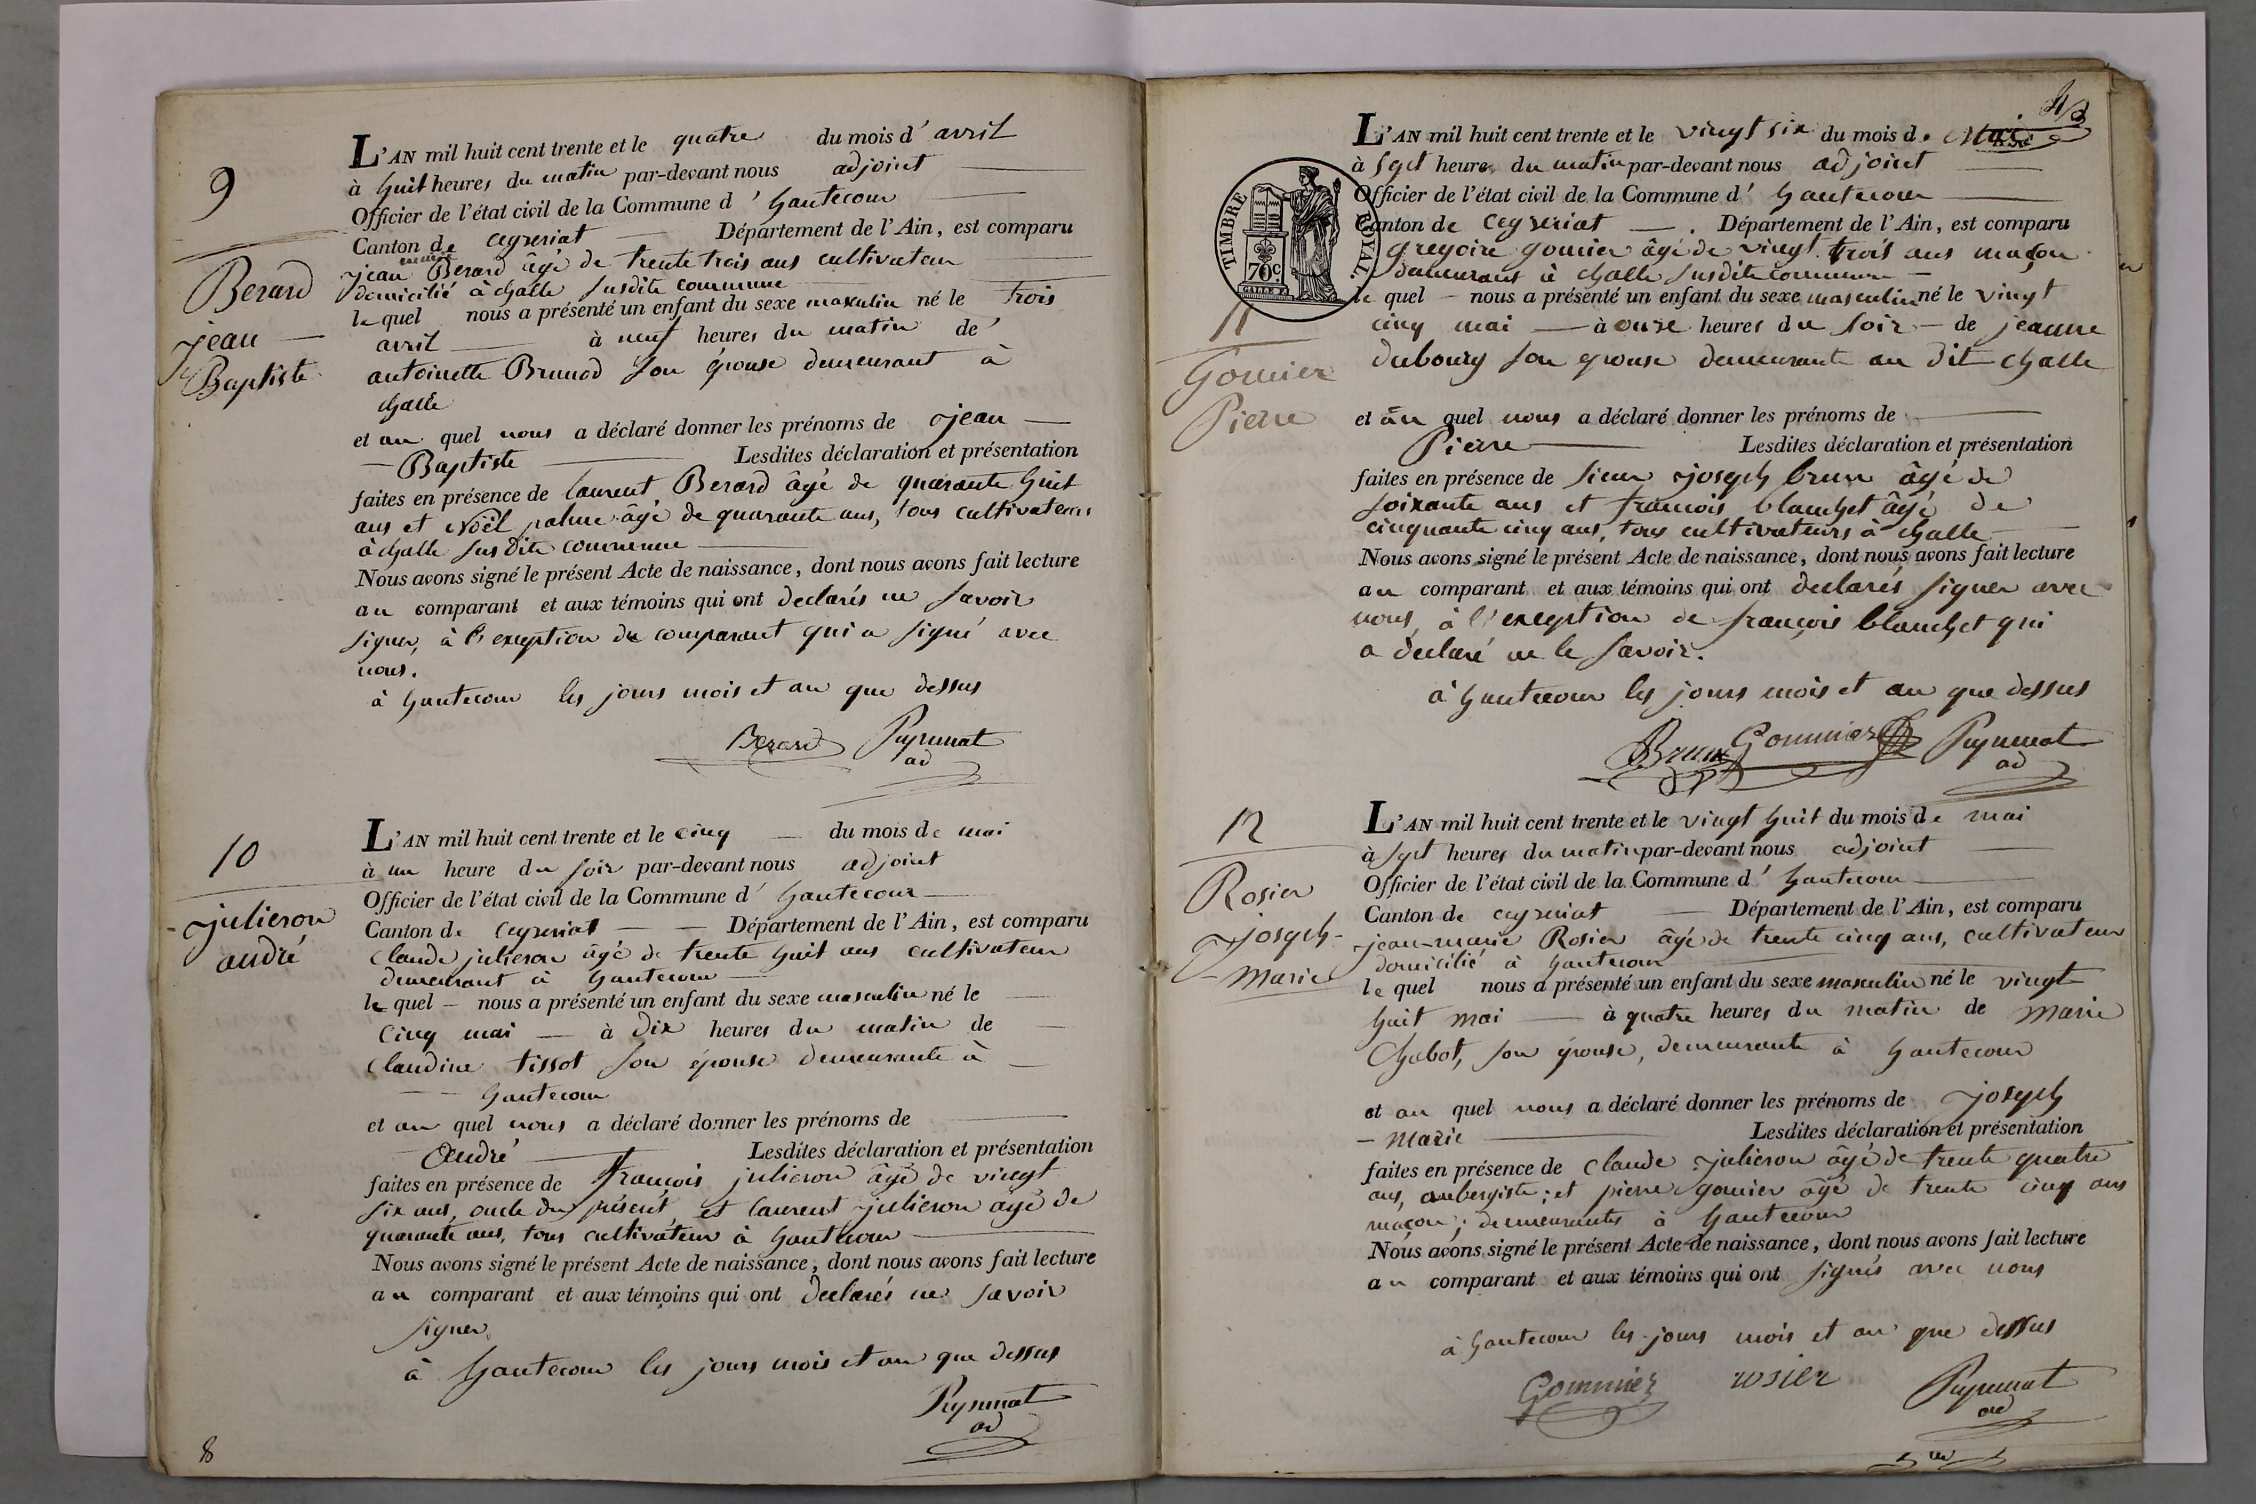 9
Berard
jean
Baptiste
L'AN mil huit cent trente et le quatre du mois d'avril
à huit heures du matin par-devant nous adjoint
Officier de l'état civil de la Commune d'hautecour
Canton de ceyzeriat Département de l'Ain, est comparu
jean Berard âgé de trente trois ans cultivateur
domicilié à challe susdite commune
le quel nous a présenté un enfant du sexe masculin né le trois
avril à neuf heures du matin de
antoinette Brunod son épouse demeurant à
challe
et au quel nous a déclaré donner les prénoms de jean
Baptiste Lesdites déclaration et présentation
faites en présence de laurent Berard âgé de quarante huit
ans et Noël palme âgé de quarante ans, tous cultivateurs
à challe susdite commune
Nous avons signé le présent Acte de naissance, dont nous avons fait lecture
au comparant et aux témoins qui ont declarés ne savoir
signer, à l'exception du comparant qui a signé avec
nous.
à hautecour les jours mois et an que dessus
Berard Puynnat
ad
10
julieron
andré
L'AN mil huit cent trente et le cinq du mois de mai
à un heure du soir par-devant nous adjoint
Officier de l'état civil de la Commune d'hautecour
Canton de ceyzeriat Département de l'Ain, est comparu
claude julieron âgé de trente huit ans cultivateur
demeurant à hautecour
le quel nous a présenté un enfant du sexe masculin né le
cinq mai à dix heures du matin de
claudine tissot son épouse demeurante à
hautecour
et au quel nous a déclaré donner les prénoms de
André Lesdites déclaration et présentation
faites en présence de françois julieron âgé de vingt
six ans, oncle du présent, et laurent julieron âgé de
quarante ans, tous cultivateur à hautecour
Nous avons signé le présent Acte de naissance, dont nous avons fait lecture
au comparant et aux témoins qui ont declarés ne savoir
signer.
à hautecour les jours mois et an que dessus
Puynnat
ad
8
TIMBRE ROYAL.
70c
11
Gomier
Pierre
L'AN mil huit cent trente et le vingt six du mois de Mai
à sept heures du matin par-devant nous adjoint
Officier de l'état civil de la Commune d'hautecour
Canton de ceyzeriat Département de l'Ain, est comparu
gregoire gomier âgé de vingt trois ans maçon
demeurant à challe susdite commune
le quel nous a présenté un enfant du sexe masculin né le vingt
cinq mai à onze heures du soir de jeanne
dubourg son epouse demeurante au dit challe
et au quel nous a déclaré donner les prénoms de
Pierre Lesdites déclaration et présentation
faites en présence de sieur joseph brun âgé de
soixante ans et françois blanchet âgé de
cinquante cinq ans, tous cultivateurs à challe
Nous avons signé le présent Acte de naissance, dont nous avons fait lecture
au comparant et aux témoins qui ont declarés signer avec
nous, à l'exception de françois blanchet qui
a declaré ne le savoir.
à hautecour les jours mois et an que dessus
Brun Gommier Puynnat
ad
12
Rosier
joseph-
marie
L'AN mil huit cent trente et le vingt huit du mois de mai
à sept heures du matin par-devant nous adjoint
Officier de l'état civil de la Commune d'hautecour
Canton de ceyzeriat Département de l'Ain, est comparu
jean-marie Rosier âgé de trente cinq ans, cultivateur
domicilié à hautecour
le quel nous a présenté un enfant du sexe masculin né le vingt
huit mai à quatre heures du matin de marie
Chabot, son épouse, demeurante à hautecour
et au quel nous a déclaré donner les prénoms de joseph
- marie Lesdites déclaration et présentation
faites en présence de claude julieron âgé de trente quatre
ans, aubergiste; et pierre gomier âgé de trente cinq ans
maçon; demeurantes à hautecour
Nous avons signé le présent Acte de naissance, dont nous avons fait lecture
au comparant et aux témoins qui ont signés avec nous
à hautecour les jours mois et an que dessus
Gommier rosier Puynnat
ad